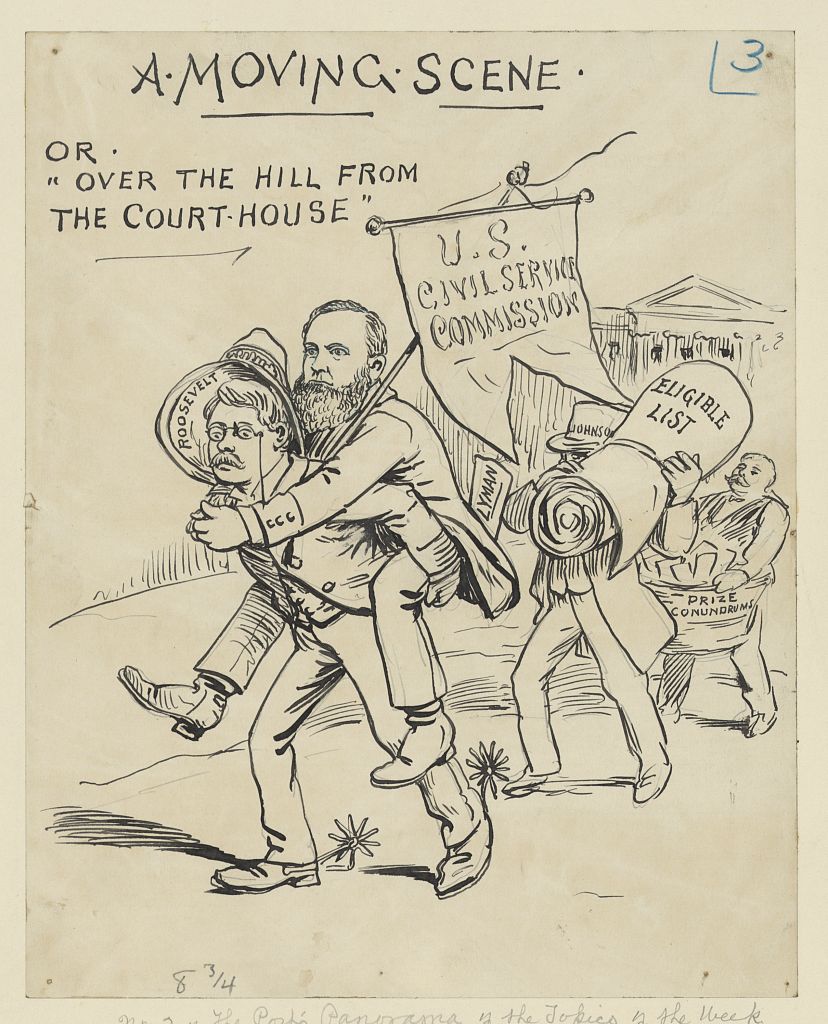 A·MOVING·SCENE·
3
OR·
"OVER THE HILL FROM
THE COURT-HOUSE"
U.S.
CIVIL SERVICE
COMMISSION
ROOSEVELT
ELIGIBLE
LIST
JOHNSO
LYMAN
PRIZE
CONUNDRUMS
8 3/4
No. 3 of The Post's Panorama of the Topics of the Week